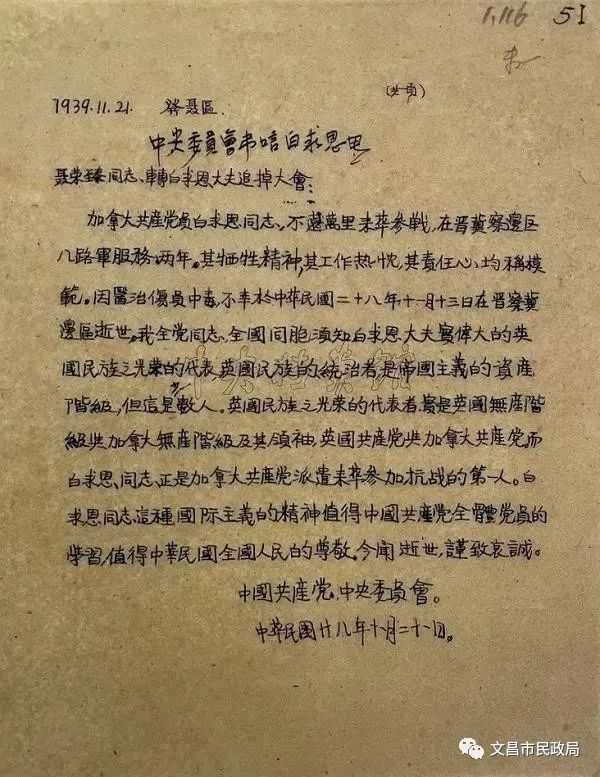 1,116 51
(共一頁)
1939.11.21. 發聶區.
中央委員會弔唁白求恩電
聶荣臻同志、轉白求恩大夫追掉大會:
加拿大共產党員白求恩同志、不遠萬里来華參戦,在晋冀察邊区
八路軍服務两年。其牺牲精神,其工作热忱,其責任心、均稱模
範。因醫治傷員中毒,不幸於中華民國二十八年十一月十三日在晋察冀
邊區逝世。我全党同志、全國同胞須知白求恩、大夫實偉大的英
國民族之光荣的代表英國民族的統治者是帝國主義的資產
階級,但這是少數人。英國民族之光荣的代表者,實是英國無產階
級共加拿大無產階級及其領袖,英國共產党共加拿大共產党。而
白求恩、同志、正是加拿大共產党派遣来華參加抗战的第一人。白
求恩同志這種國际主義的精神值得中國共產党全體党員的
學習,值得中華民國全國人民的尊敬。今聞逝世,謹致哀誠。
中國共產党、中央委員會。
中華民國廿八年十一月二十一日。
文昌市民政局